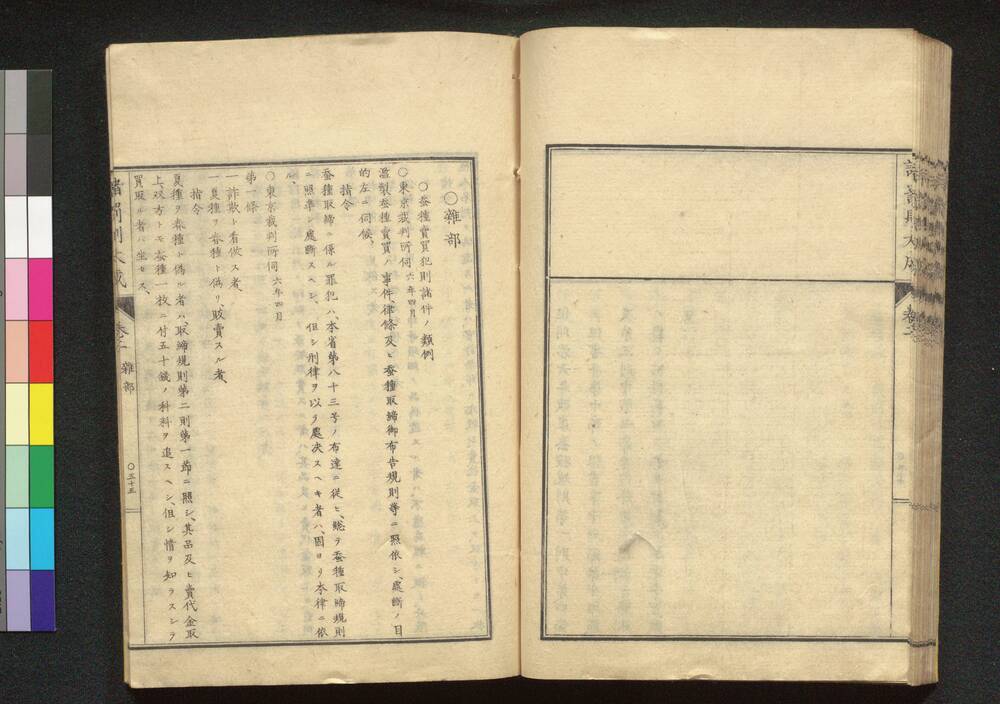 ○雜部
○蚕種賣買犯則諸件ノ類例
○東京裁判所伺 六年四月
濫製蚕種賣買ノ事件、律條及ヒ蚕種取締御布告規則等ニ照依シ、處斷ノ目
的左ニ伺候、
指令
蚕種取締ニ係ル罪犯ハ、本省第八十三号ノ布達ニ従ヒ、總テ蚕種取締規則
ニ照準シ處斷スヘシ、但シ刑律ヲ以テ處决スヘキ者ハ、固ヨリ本律ニ依
ル
○東京裁判所伺 六年四月
第一條
一詐欺ト看做ス者、
一夏種ヲ春種ト偽リ、販賣スル者、
指令
夏種ヲ春種ト偽ル者ハ、取締規則第二則第一節ニ照シ、其品及ヒ賣代金取
上、双方トモ蚕種一枚ニ付五十錢ノ科料ヲ追スヘシ、但シ情ヲ知ラスシテ
買取ル者ハ坐セス、
雜部
○三十五